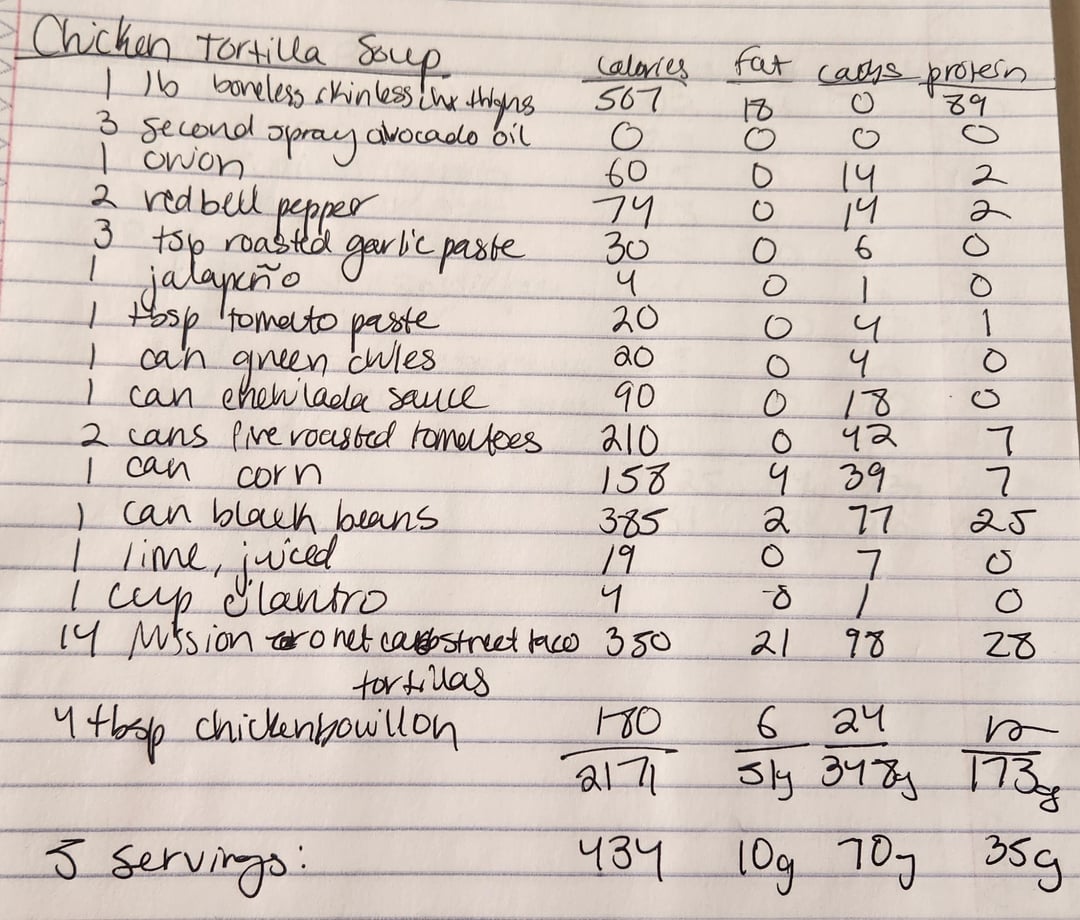 Chicken Tortilla Soup calories fat carbs protein
1 lb boneless skinless chx thighs 567 18 0 89
3 second spray avocado oil 0 0 0 0
1 onion 60 0 14 2
2 red bell pepper 74 0 14 2
3 tsp roasted garlic paste 30 0 6 0
1 jalapeño 4 0 1 0
1 tbsp tomato paste 20 0 4 1
1 can green chiles 20 0 4 0
1 can enchilada sauce 90 0 18 0
2 cans fire roasted tomatoes 210 0 42 7
1 can corn 158 4 39 7
1 can black beans 385 2 77 25
1 lime, juiced 19 0 7 0
1 cup cilantro 4 0 1 0
14 Mission 0 net carb street taco 350 21 98 28
tortillas
4 tbsp chicken bouillon 180 6 24 12
2171 51g 348g 173g
5 servings: 434 10g 70g 35g